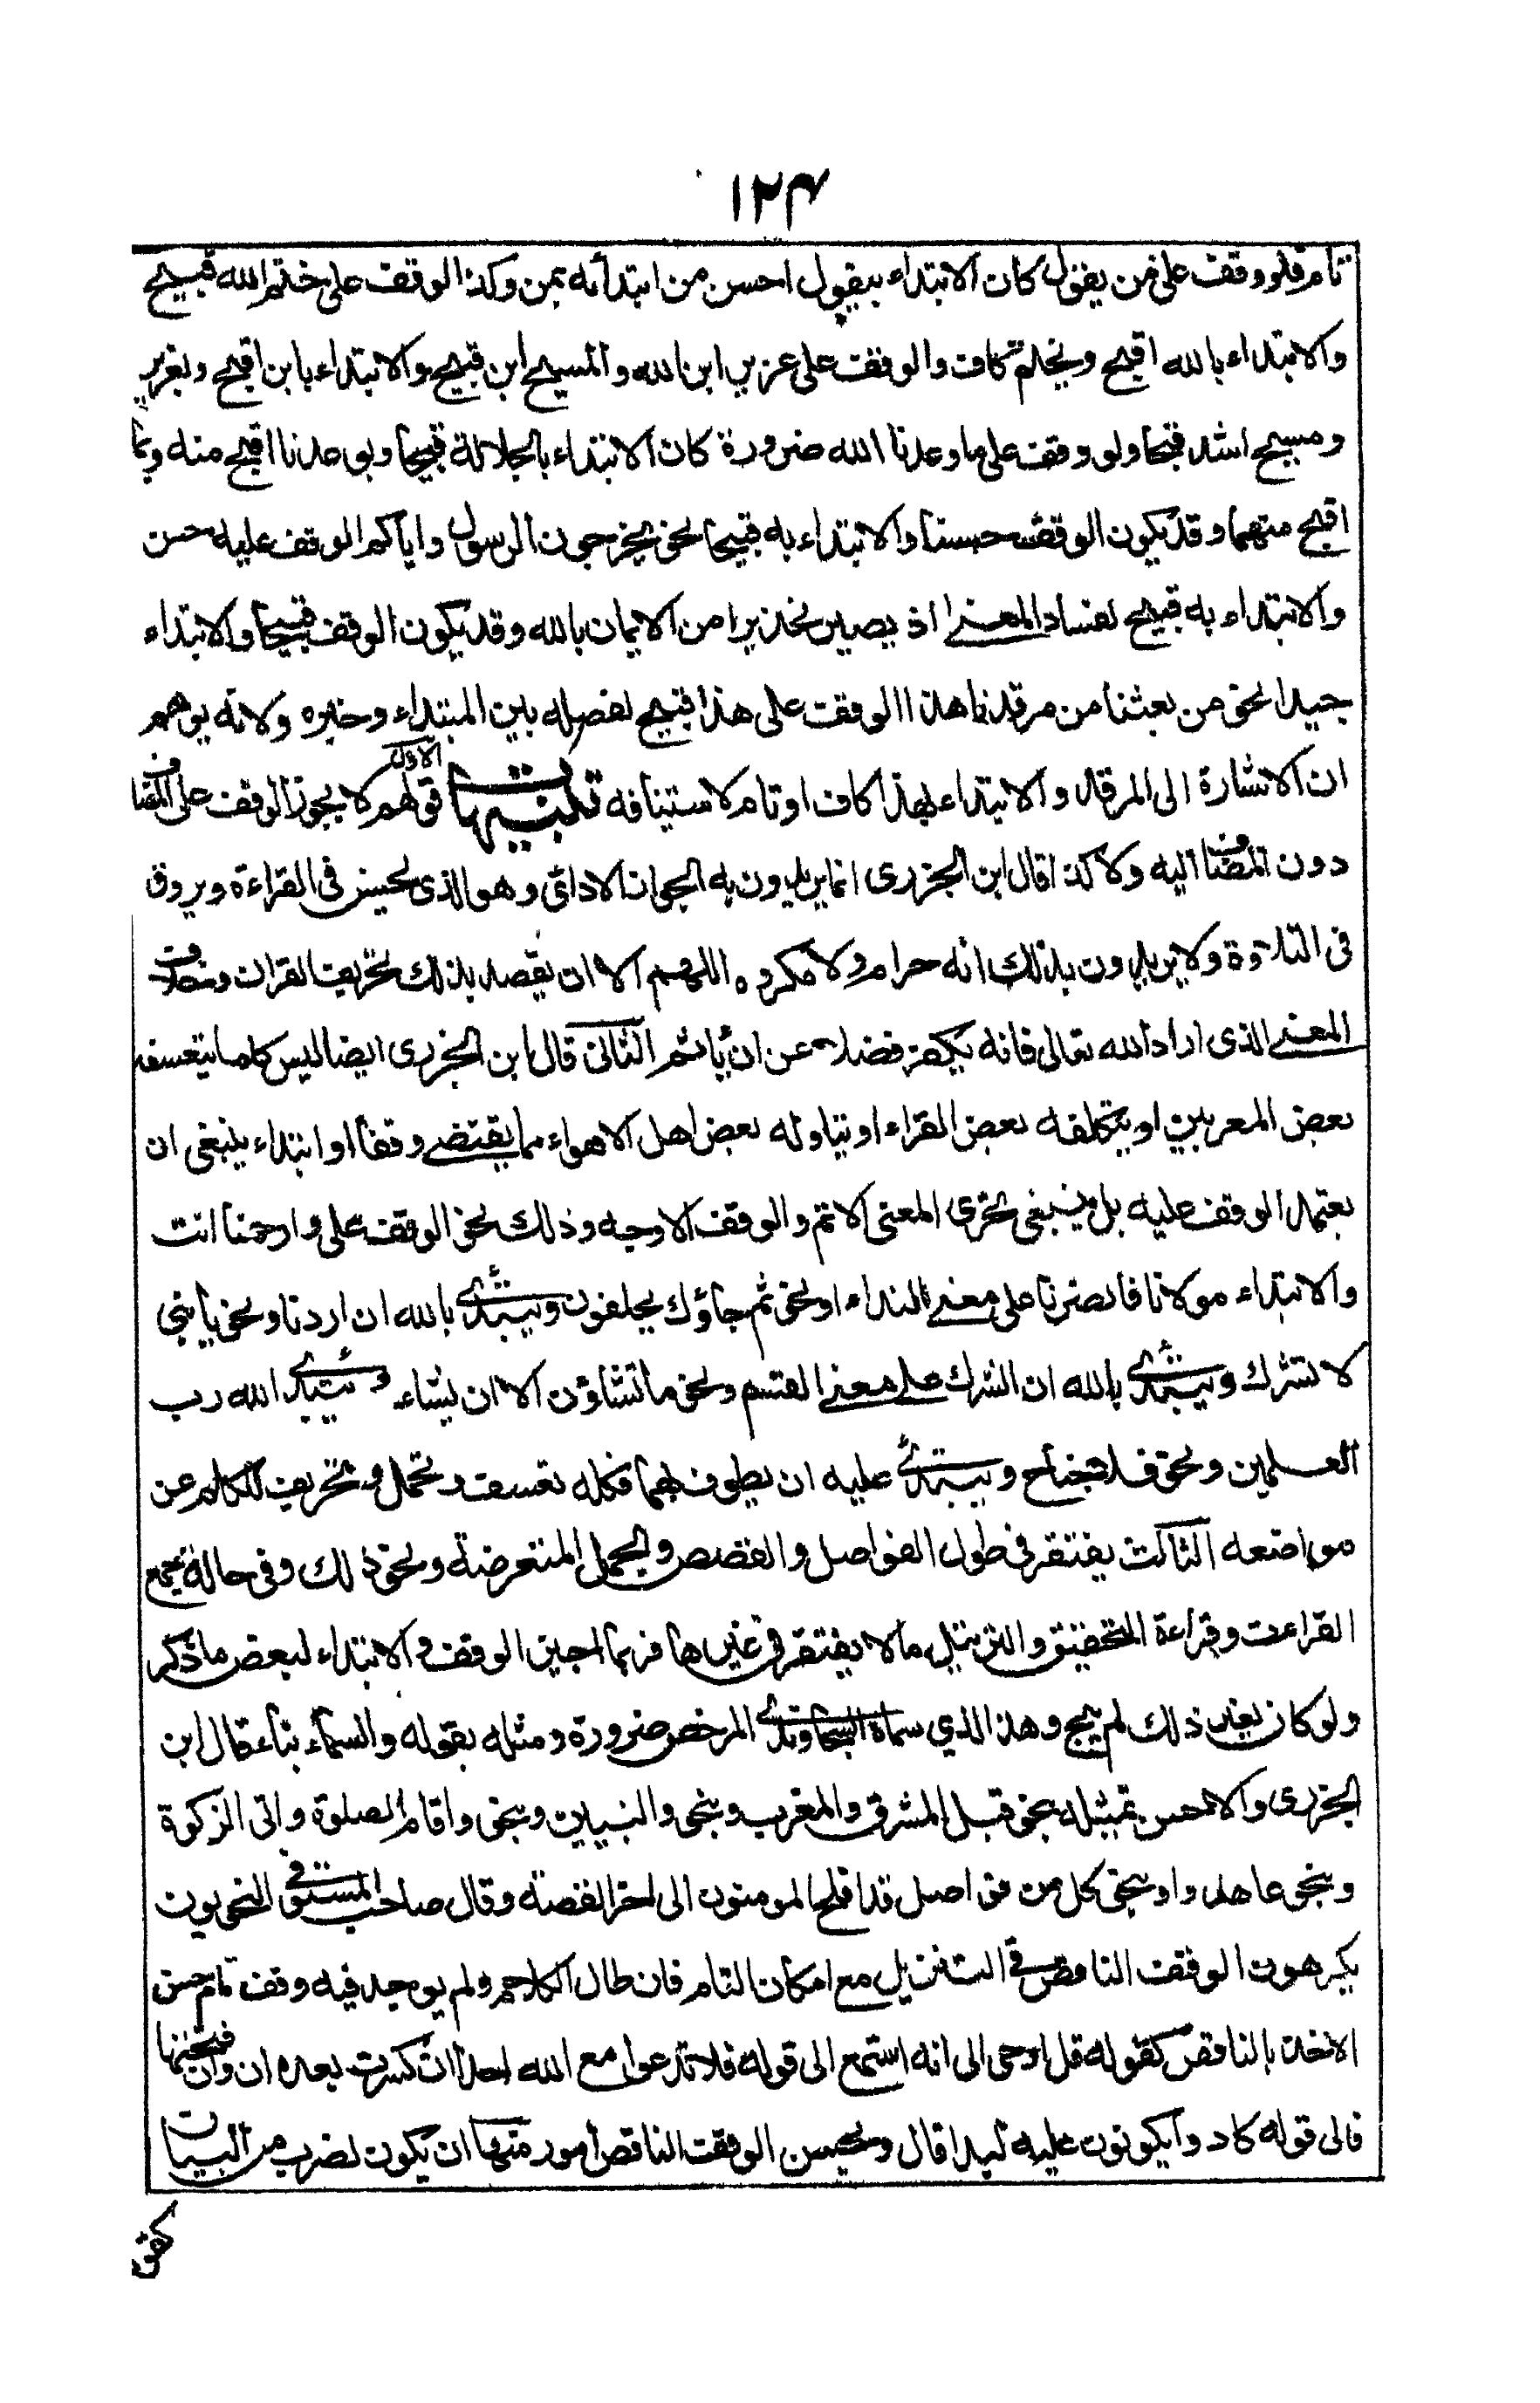 ١٢۴
تام فلو وقف على من يقول كان الابتداء بيقول احسن من ابتدائه بمن وكذا الوقف على ختم الله قبيح
والابتداء بالله اقبح وبختم كاف والوقف على عزير ابن الله والمسيح ابن قبيح والابتداء بابن اقبح وبعزير
ومسيح اشد قبحا ولو وقف على ما وعدنا الله ضرورة كان الابتداء بالجلالة قبيحا وبوعدنا اقبح منه وبما
اقبح منهما وقد يكون الوقف حسنا والابتداء به قبيحا نحو يخرجون الرسول واياكم الوقف عليه حسن
والابتداء به قبيح لفساد المعنى اذ يصير تحذيرا من الايمان بالله وقد يكون الوقف قبيحا والابتداء
جيدا نحو من بعثنا من مرقدنا هذا الوقف على هذا قبيح لفصله بين المبتداء وخبره ولانه يوهم
ان الاشارة الى المرقد والابتداء بهذا كاف او تام لاستينافه تنبيهات الاول قولهم لا يجوز الوقف على المضاف
دون المضاف اليه ولا كذا قال ابن الجزرى انما يريدون به الجواز الادائى وهو الذى يحسن فى القراءة ويروق
فى التلاوة ولا يريدون بذلك انه حرام ولا مكروه اللهم الا ان يقصد بذلك تحريف القران وخلاف
المعنى الذى اراد الله تعالى فانه يكفر فضلا عن ان ياثم الثانى قال ابن الجزرى ايضا ليس كلما يتعسفه
بعض المعربين او يتكلفه بعض القراء او يتاوله بعض اهل الاهواء مما يقتضى وقفا او ابتداء ينبغى ان
يعتمد الوقف عليه بل ينبغى تحرى المعنى الاتم والوقف الاوجه وذلك نحو الوقف على وارحمنا انت
والابتداء مولانا فانصرنا على معنى النداء او نحو ثم جاؤك يحلفون ويبتدئ بالله ان اردنا ونحو يا بنى
لا تشرك ويبتدئ بالله ان الشرك على معنى القسم ونحو ما تشاؤن الا ان يشاء ويبتدئ الله رب
العلمين ونحو فلا جناح ويبتدئ عليه ان يطوف بهما فكله تعسف وتمحل وتحريف للكلم عن
مواضعه الثالث يغتفر فى طول الفواصل والقصص والجمل المتعرضة ونحو ذلك وفى حالة جمع
القراءت وقراءة التحقيق والترتيل ما لا يغتفر فى غيرها فربما اجيز الوقف والابتداء لبعض ما ذكر
ولو كان لغير ذلك لم يبح وهذا الذي سماه السجاوندى المرخص ضرورة ومثله بقوله والسماء بناء قال ابن
الجزرى والاحسن تمثيله بنحو قبل المشرق والمغرب وبنحو والنبيين وبنحو واقام الصلوة واتى الزكوة
وبنحو عاهدوا وبنحو كل من فواصل قد افلح المومنون الى اخر القصة وقال صاحب المستوفى النحويون
يكرهون الوقف الناقص فى التنزيل مع امكان التام فان طال الكلام ولم يوجد فيه وقف تام حسن
الاخذ بالناقص كقوله قل اوحى الى انه استمع الى قوله فلا تدعوا مع الله احدا ان كسرت بعده ان وان فتحتها
فالى قوله كادوا يكونون عليه لبدا قال ويحسن الوقف الناقص امور منها ان يكون لضرب من البيان
كقو